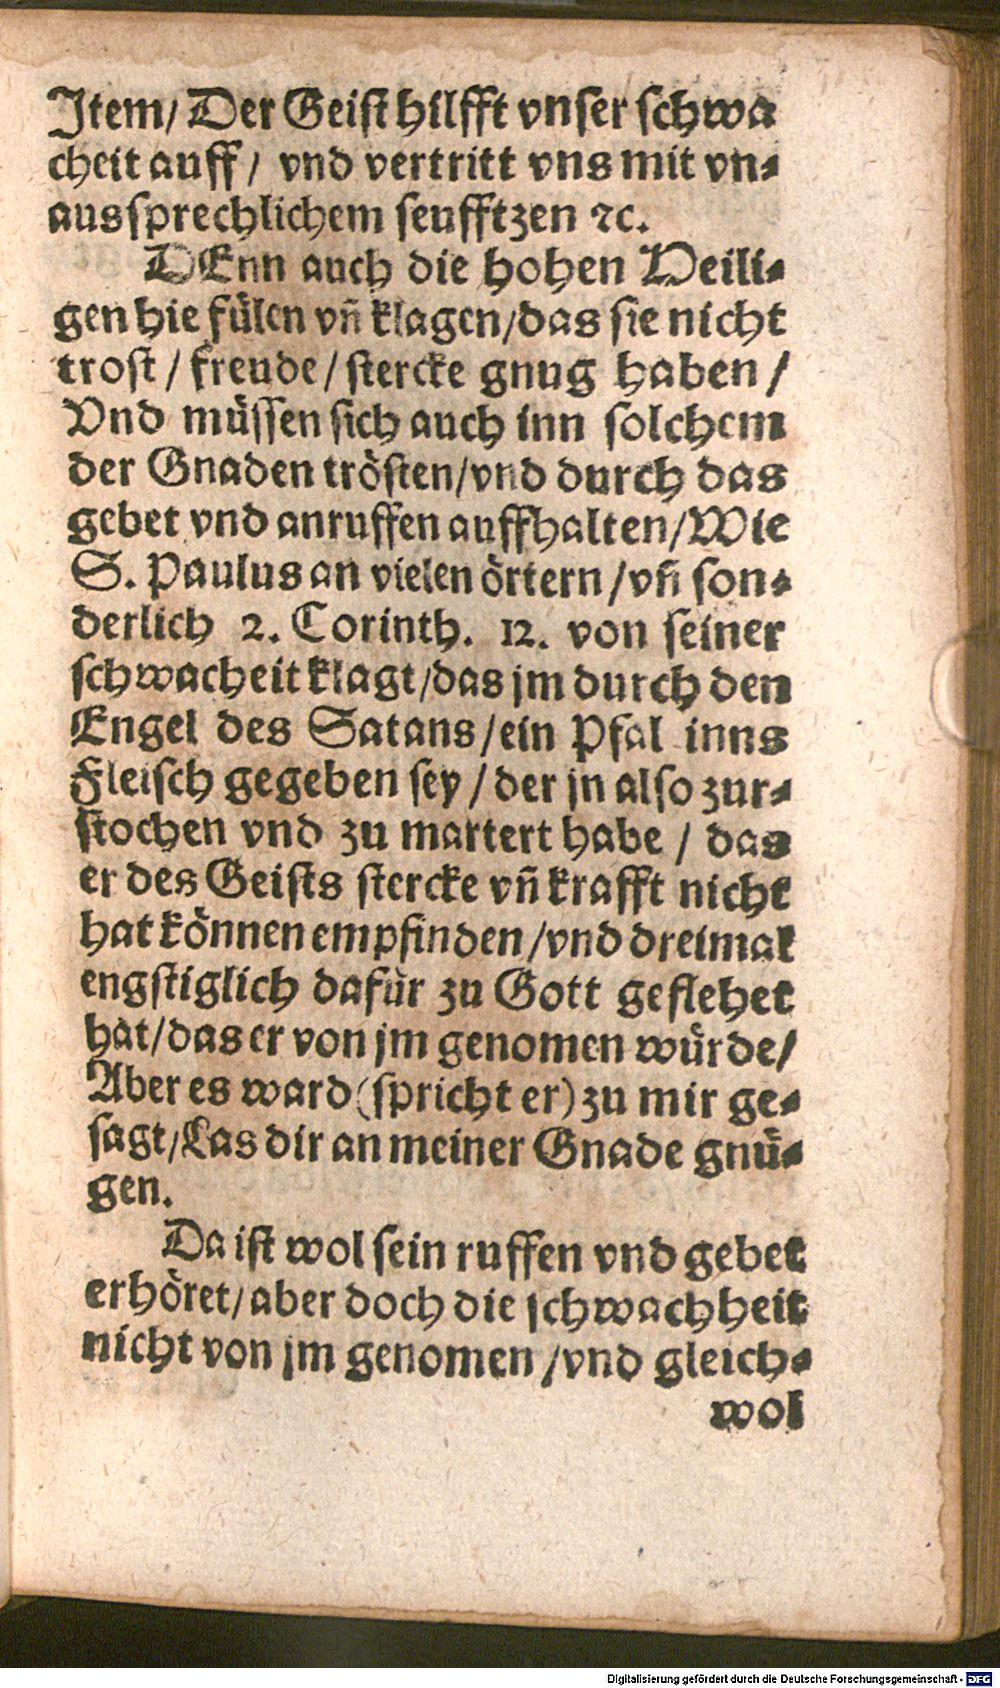 Item/ Der Geist hilfft vnser schwa
cheit auff/ vnd vertritt vns mit vn⸗
aussprechlichem seufftzen ⁊c.
DEnn auch die hohen Heili⸗
gen hie fülen vñ klagen/das sie nicht
trost/ freude/ stercke gnug haben/
Vnd müssen sich auch inn solchem
der Gnaden trösten/vnd durch das
gebet vnd anruffen auffhalten/Wie
S. Paulus an vielen örtern/vñ son⸗
derlich 2. Corinth. 12. von seiner
schwacheit klagt/das jm durch den
Engel des Satans/ein Pfal inns
Fleisch gegeben sey/ der jn also zur⸗
stochen vnd zu martert habe/ das
er des Geists stercke vñ krafft nicht
hat können empfinden/vnd dreimal
engstiglich dafür zu Gott geflehet
hat/das er von jm genomen würde/
Aber es ward (spricht er) zu mir ge⸗
sagt/Las dir an meiner Gnade gnü⸗
gen.
Da ist wol sein ruffen vnd gebet
erhöret/aber doch die schwachheit
nicht von jm genomen/vnd gleich⸗
wol
Digitalisierung gefördert durch die Deutsche Forschungsgemeinschaft - DFG